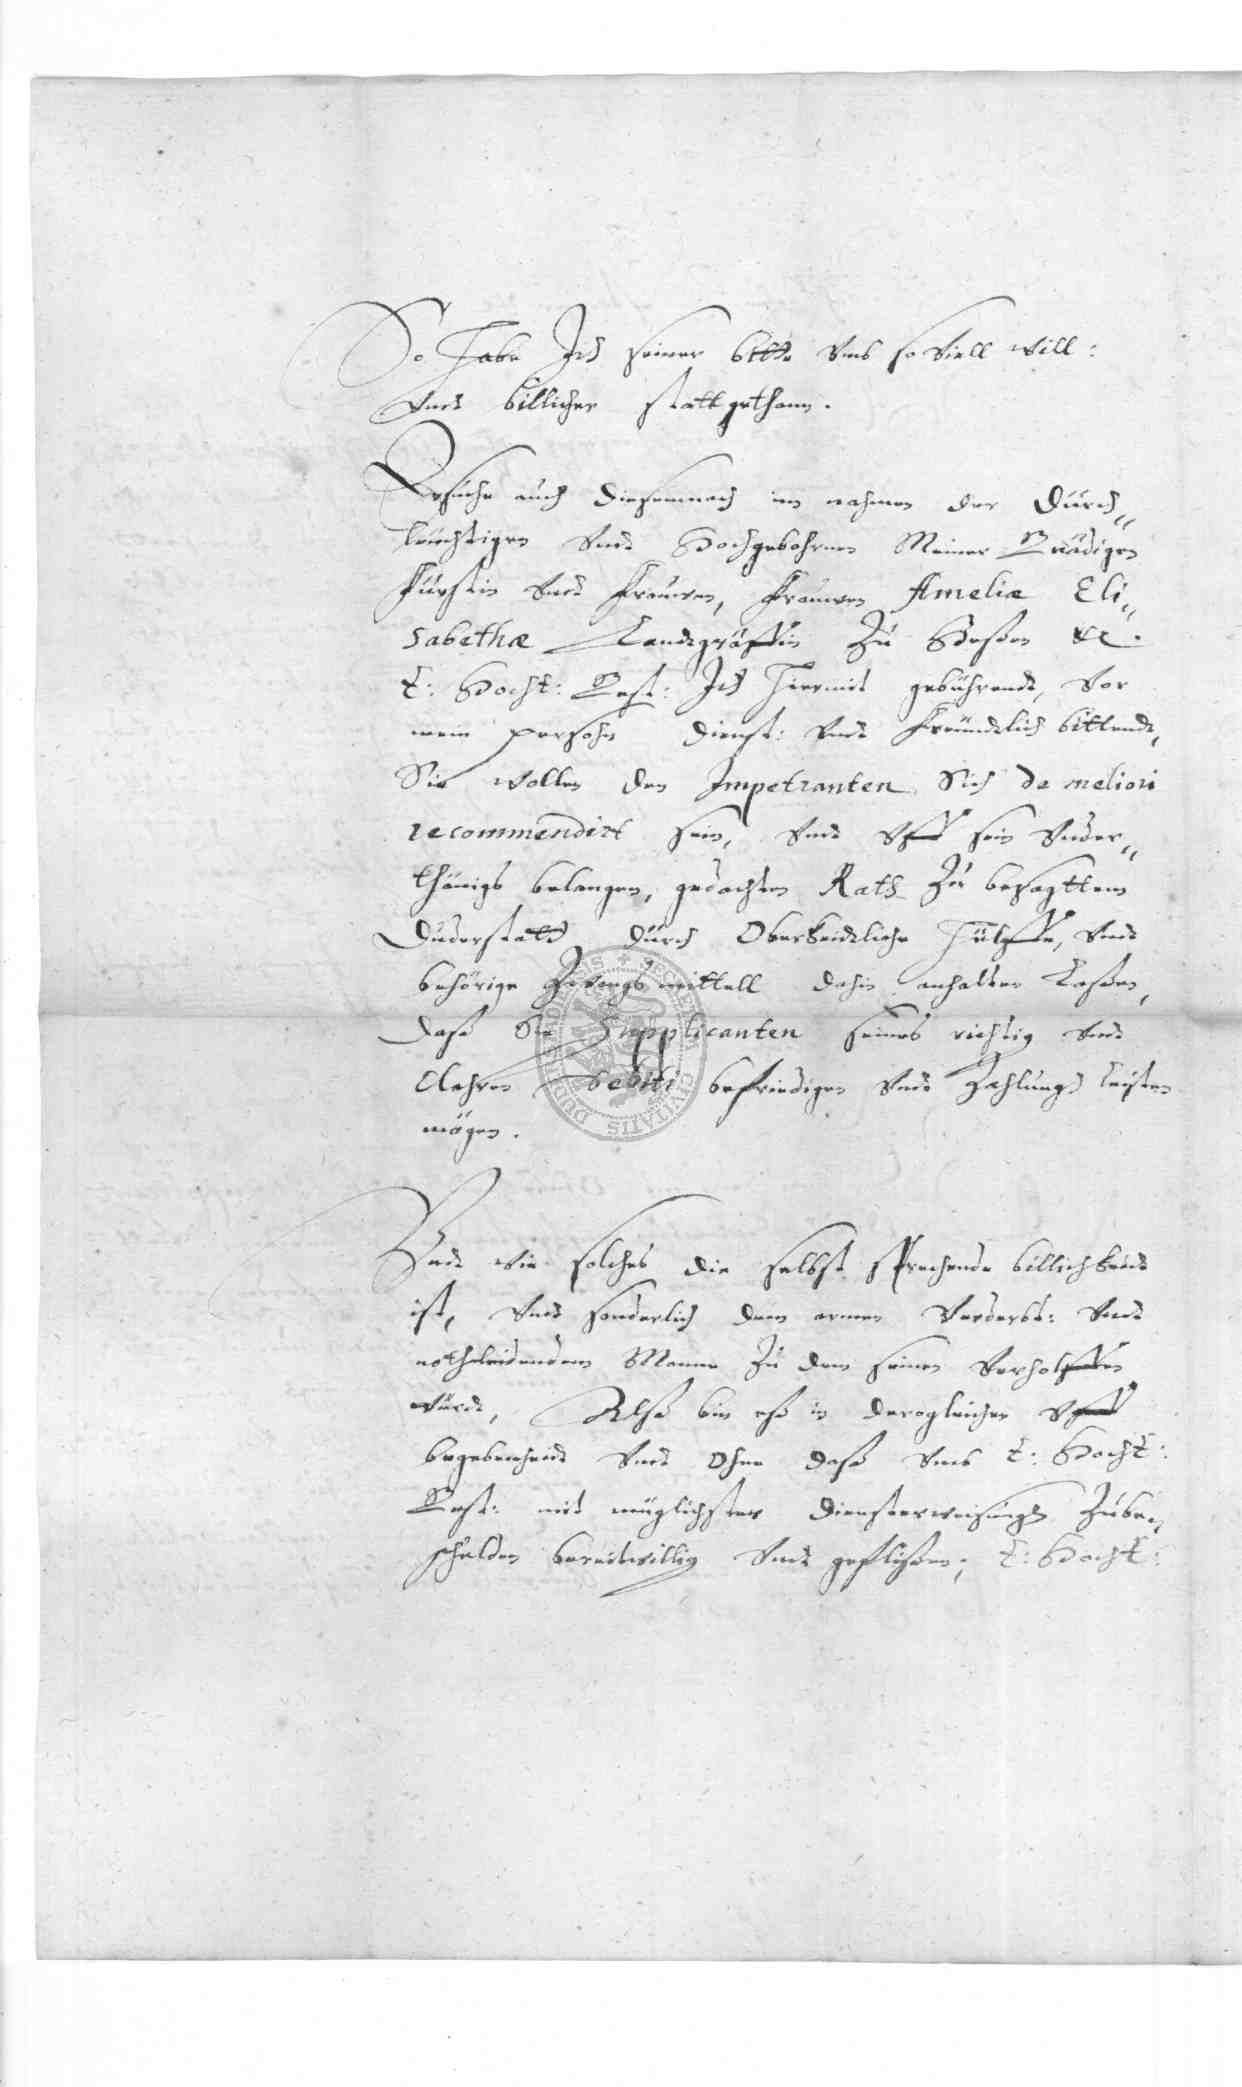 So habe Ich seiner bitte Umb so viell will:
Undt billicher statt gethann.
Ersuche auch diesemnach im nahmen der Durch„
leuchtigen Undt Hochgebohrnen Meiner Gnädigen
Fürstin Undt Frauwen, Frauwen Ameliæ Eli„
sabethæ Landtgräffin Zu Heßen &c.
E: Hoch E: Gest: Ich hiermit gebührendt, Vor
mein persohn dienst: Undt freundtlich bittendt,
Sie wollen den Impetranten Sich de meliori
recommendirt sein, Undt Uff sein Under„
thänigs belangen, gedachten Rath Zu besagttem
Duderstatt durch Oberkeidtliche hülffe, Undt
behörige Zwangs mittell dahin anhalten Laßen,
daß Sie Supplicanten seines richtig Undt
Clahren debiti befriedigen Undt Zahlung leisten
mögen.
Undt wie solches die selbst sprechende billichkeidt
ist, Undt sonderlich dem armen Verderbt: Undt
nothleidendem Manne Zu dem seinen Verholffen
würdt, Alß bin eß in dergleichen Uff
begebenheidt Undt Ohne daß Umb E: Hoch E:
Gest: mit müglichster diensterweisung Zube„
schulden bereitwillig Undt geflißen, E: Hoch E:
SIGILLUM SECRETUM CIVITATIS DUDERSTADENSIS